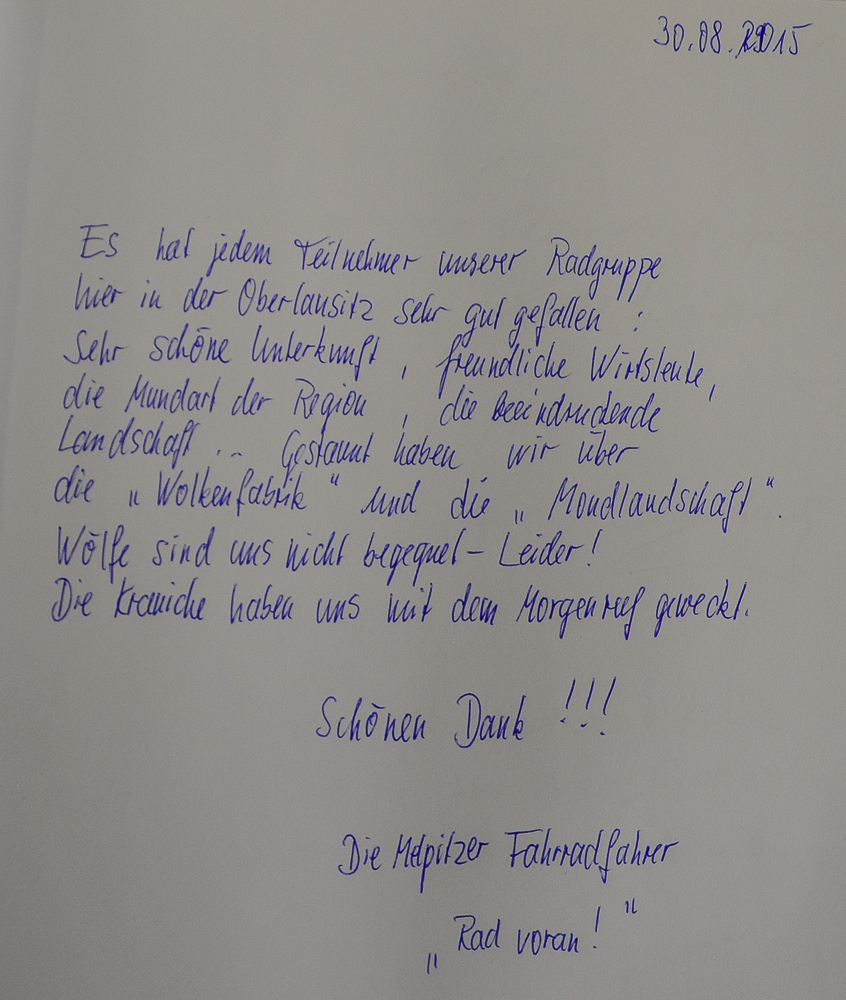 30.08.2015
Es hat jedem Teilnehmer unserer Radgruppe
hier in der Oberlausitz sehr gut gefallen :
Sehr schöne Unterkunft , freundliche Wirtsleute,
die Mundart der Region , die beeindruckende
Landschaft ... Gestaunt haben wir über
die „Wolkenfabrik“ und die „Mondlandschaft“.
Wölfe sind uns nicht begegnet – Leider!
Die Kraniche haben uns mit dem Morgenruf geweckt.
Schönen Dank !!!
Die Melpitzer Fahrradfahrer
„Rad voran!“